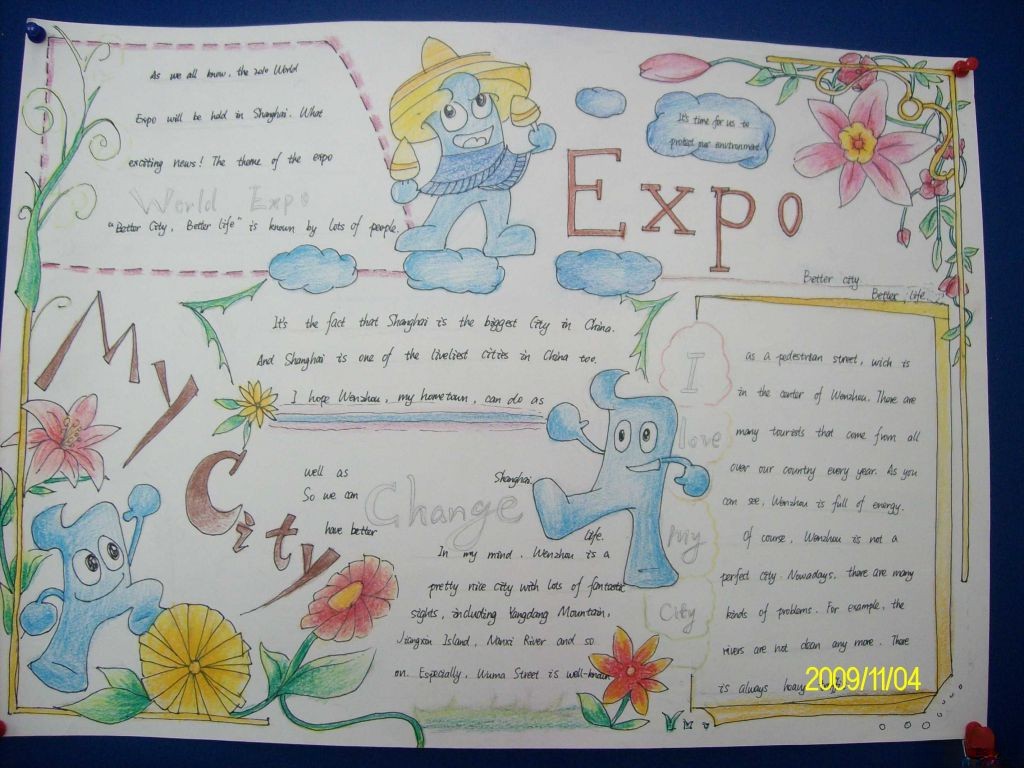 As we all know, the 2010 World
Expo will be held in Shanghai. What
exciting news! The theme of the expo
World Expo
"Better City, Better life" is known by lots of people.
It's time for us to
protect our environment.
Expo
Better city
Better life
My City
It's the fact that Shanghai is the biggest City in China.
And Shanghai is one of the liveliest cities in China too.
I hope Wenzhou, my hometown, can do as
well as Shanghai.
So we can
Change
have better life.
In my mind, Wenzhou is a
pretty nice city with lots of fantastic
sights, including Yangdang Mountain,
Jiangxin Island, Nanxi River and so
on. Especially, Wuma Street is well-known
I
love
My
City
as a pedestrian street, wich is
in the center of Wenzhou. There are
many tourists that come from all
over our country every year. As you
can see, Wenzhou is full of energy.
Of course, Wenzhou is not a
perfect city. Nowadays, there are many
kinds of problems. For example, the
rivers are not clean any more. There
is always heavy
2009/11/04